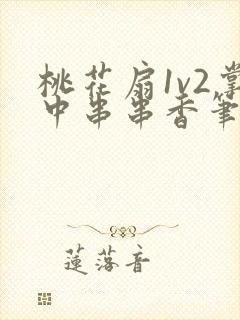 桃花扇1v2掌
中串串香笔
莲落音